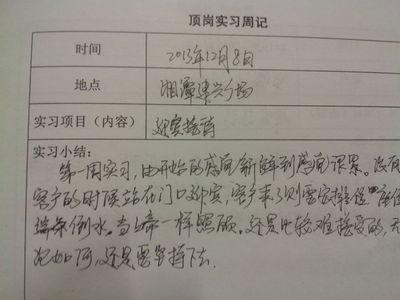 顶岗实习周记
时间 2013年12月8日
地点 湘潭建兴广场
实习项目（内容） 迎宾接待
实习小结：
第一周实习，由开始的感觉新鲜到感觉很累。没有
客户的时候站在门口迎宾，客户来了则需安排座位
端茶倒水。当上帝一样照顾。还是比较难接受的，无
论如何，还是要坚持下去.